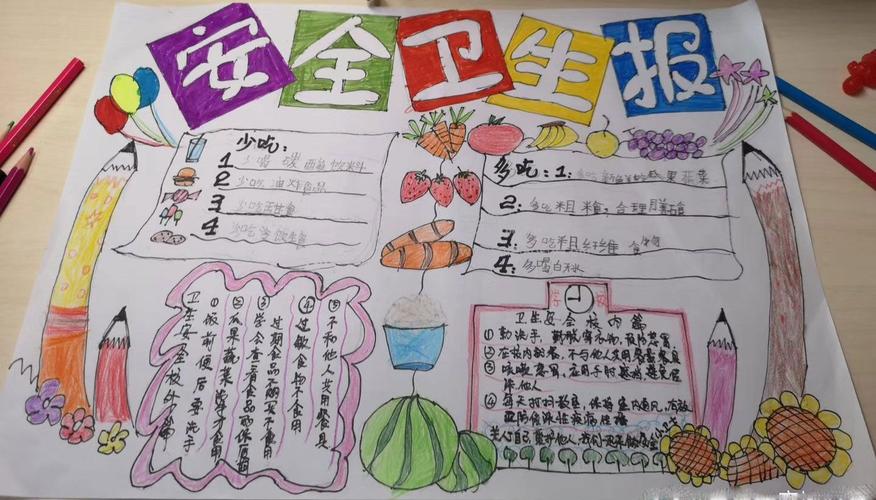 安全卫生报
少吃:
1 少喝碳酸饮料
2 少吃油炸食品
3 少吃零食
4 少吃冷饮
多吃:1:多吃新鲜 果 蔬菜
2:多吃粗粮,合理膳食
3:多吃粗纤维食物
4:多喝白水
卫生安全校外篇
①饭前便后要洗手
②瓜果蔬菜 净才食用
③学会查看食品的保质期
过期食品不购买不食用
④过敏食物不食用
⑤不和他人共用餐具
卫生安全校内篇
①勤洗手,
②在校内就餐,不与他人共用餐具
③咳嗽 应用手肘遮挡,避免
他人
④每天打扫教室,保持室内通风,有效
预防传染性疾病
关心自己,爱护他人,我们